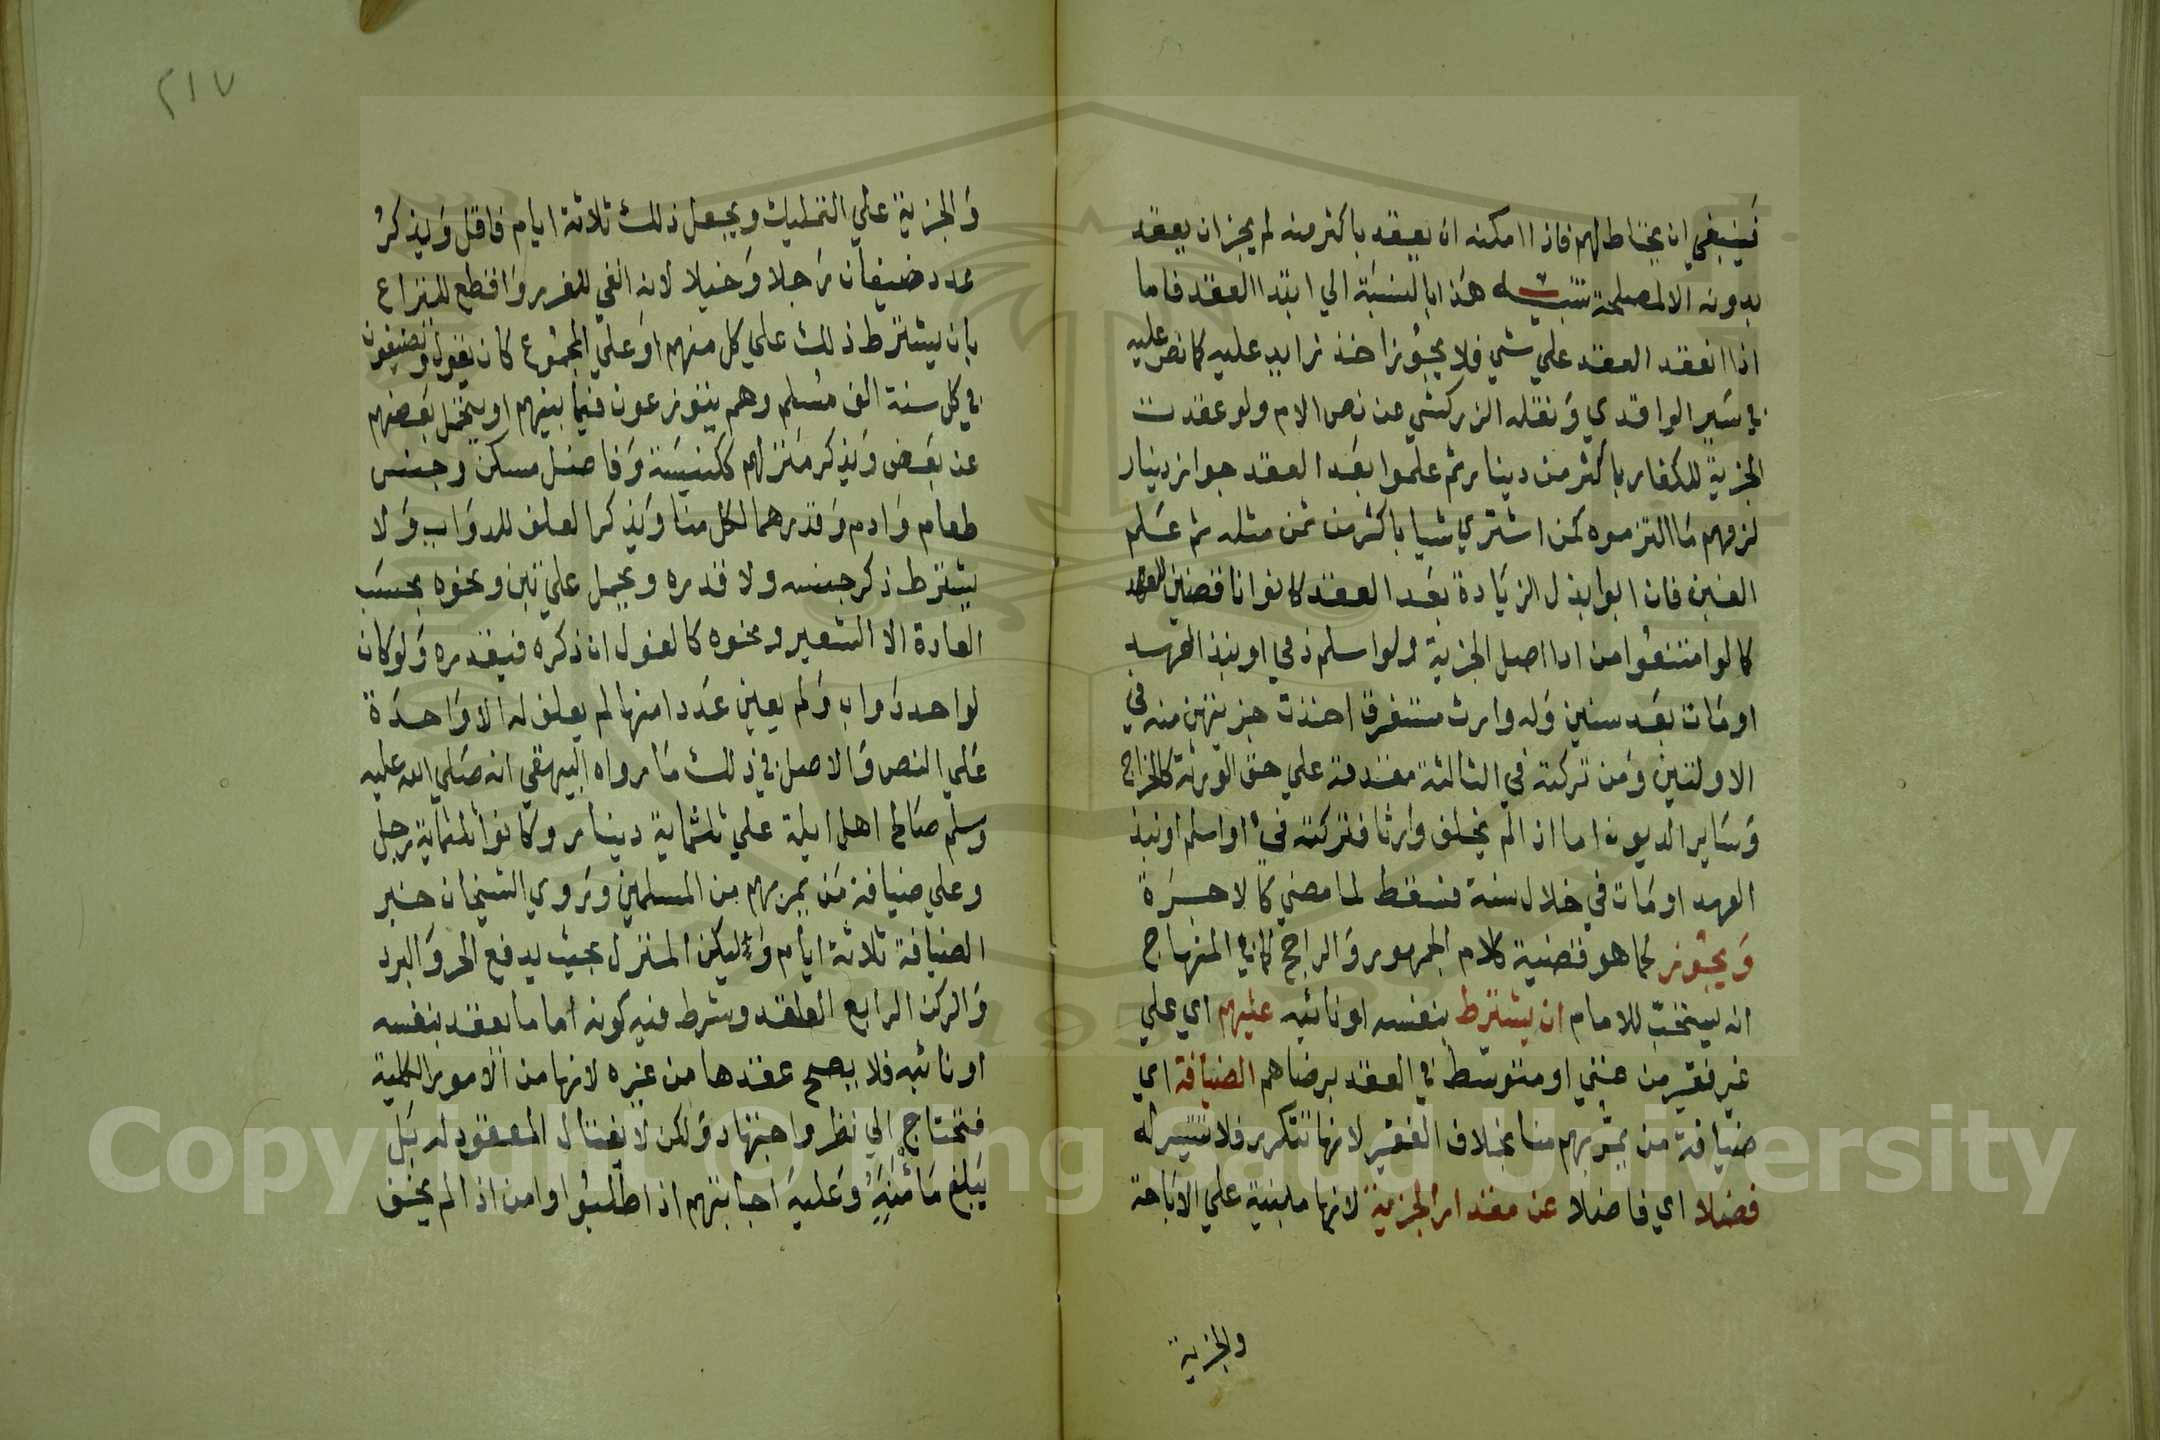 فينبغي ان يحتاط لهم فاذا امكنه ان يعقد باكثر منه لم يجز ان يعقد
بدونه الا لمصلحة تنبيه هذا بالنسبة الي ابتدا العقد فاما
اذا انعقد العقد علي شي فلا يجوز اخذ زايد عليه كما نص عليه
في سير الواقدي ونقله الزركشي عن نص الام ولو عقدت
الجزية للكفار باكثر من دينار ثم علموا بعد العقد جواز دينار
لزمهم ما التزموه كمن اشتري شيا باكثر من ثمن مثله ثم علم
الغبن فان ابوا بذل الزيادة بعد العقد كانوا ناقضين للعهد
كما لو امتنعوا من ادا اصل الجزية ولو اسلم ذمي او نبذ العهد
او مات بعد سنين وله وارث مستغرق اخذت جزيتهن منه في
الاولتين ومن تركته في الثالثة مقدمة علي حق الورثة كالخراج
وساير الديون اما اذا لم يخلف وارثا فتركته فيء او اسلم او نبذ
العهد او مات في خلال سنة فسقط لما مضي كالاجرة
ويجوز كما هو قضية كلام الجمهور والراجح كما في المنهاج
انه يستحب للامام ان يشترط بنفسه او نائبه عليهم اي علي
غير فقير من غني او متوسط في العقد برضاهم الضيافة اي
ضيافة من يمر بهم منا بخلاف الفقير لانها تتكرر فلا تتيسر له
فضلا اي فاضلا عن مقدار الجزية لانها مبنية علي الاباحة
والجزية
٢١٧
والجزية علي التمليك ويجعل ذلك ثلاثة ايام فاقل ويذكر
عدد ضيفان رجلا وخيلا لانه انفي للغرر واقطع للنزاع
بان يشترط ذلك علي كل منهم او علي المجموع كان يقول وتضيفون
في كل سنة الف مسلم وهم يتوزعون فيما بينهم او يتحمل بعضهم
عن بعض ويذكر منزلهم ككنيسة وفاضل مسكن وجنس
طعام وادم وقدرهما لكل منا ويذكر العلف للدواب ولا
يشترط ذكر جنسه ولا قدره ويحمل علي تبن ونحوه بحسب
العادة الا الشعير ونحوه كالفول ان ذكره فيقدره ولو كان
لواحد دواب ولم يعين عددا منها لم يعلف له الا واحدة
علي النص والاصل في ذلك ما رواه البيهقي انه صلي الله عليه
وسلم صالح اهل ايلة علي ثلثماية دينار وكانوا ثلثماية رجل
وعلي ضيافة من يمر بهم من المسلمين وروي الشيخان خبر
الضيافة ثلاثة ايام وليكن المنزل بحيث يدفع الحر والبرد
والركن الرابع العاقد وشرط فيه كونه اماما يعقد بنفسه
او نائبه فلا يصح عقدها من غيره لانها من الامور الكلية
فتحتاج الي نظر واجتهاد ولكن لا يغتال المعقود له بل
يبلغ مأمنه وعليه اجابتهم اذا طلبوا وامن اذا لم يخف
Copyright © King Saud University
1957